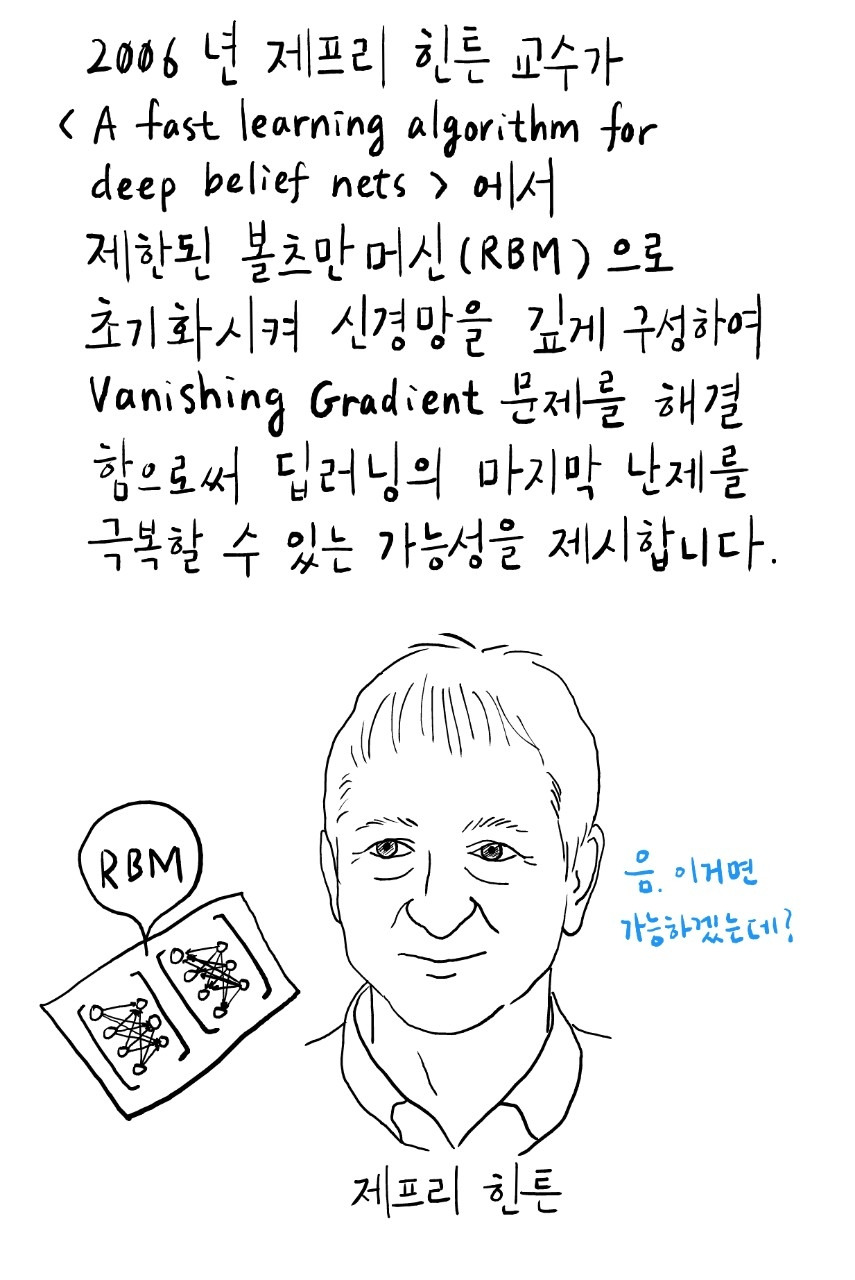 2006년 제프리 힌튼 교수가
< A fast learning algorithm for
deep belief nets > 에서
제한된 볼츠만 머신(RBM)으로
초기화시켜 신경망을 깊게 구성하여
Vanishing Gradient 문제를 해결
함으로써 딥러닝의 마지막 난제를
극복할 수 있는 가능성을 제시합니다.
RBM
음. 이거면
가능하겠는데?
제프리 힌튼